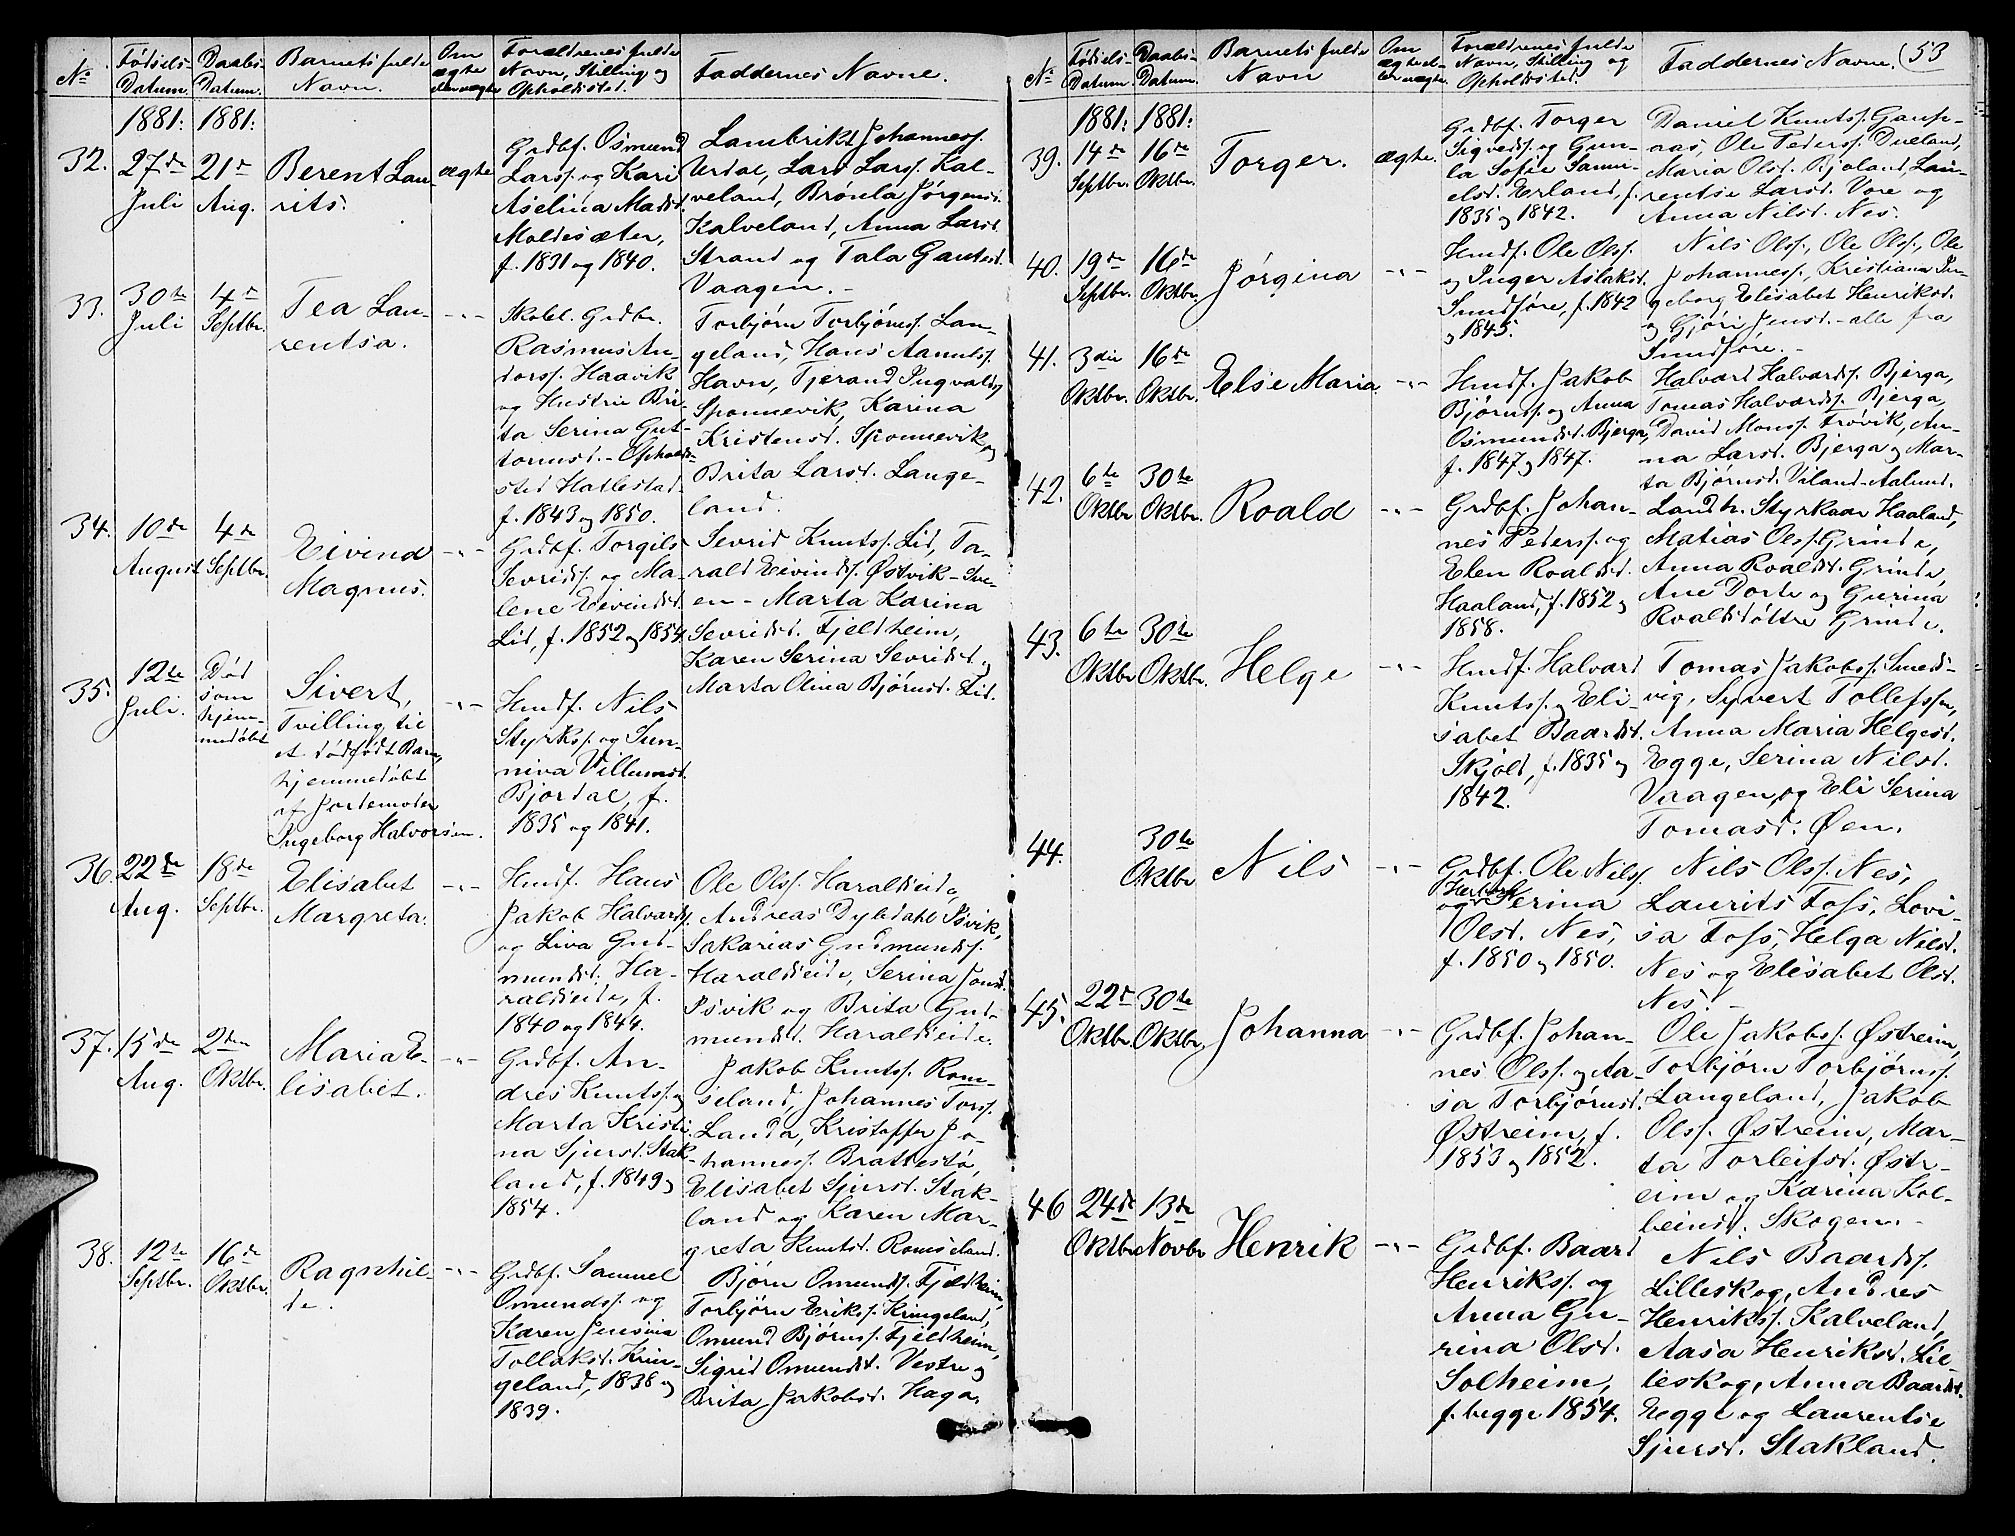 No.
Fødsels-
Datum.
Daabs-
Datum.
Barnets fulde
Navn.
Om
ægte
eller uægte
Forældrenes fulde
Navn, Stilling og
Opholdssted.
Faddernes Navne.
1881. 1881.
32. 27de Juli
21de Aug.
Berent Lau-
rits.
ægte
Grdbf. Osmund
Larss. og Kari
Aselina Madsd.
Moldesæter,
f. 1831 og 1840.
Lambrikt Johanness.
Urdal, Lars Larss. Kal-
veland, Brønla Jørgensd.
Kalveland, Anna Larsd.
Strand og Tala Gautesd.
Vaagen. -
33. 30te Juli
4de Septbr.
Tea Lau-
rentsa.
-"-
Skolel. Grdbr.
Rasmus An-
dorss. Haavik
og Hustru Bri-
ta Serina Gut-
tormsd. - Opholds-
sted Hatlestad.
f. 1843 og 1850.
Torbjørn Torbjørnss. Lan-
geland, Hans Aanuls.
Havn, Tjerand Ingvalds.
Sponnevik, Karina
Kristensd. Sponnevik og
Brita Larsd. Lange-
land.
34. 10de August
4de Septbr.
Eivind
Magnus.
-"-
Grdbf. Torgils
Sevrids. og Ma-
lene Eivindsd.
Lid, f. 1852 og 1854.
Sevrid Knutss. Lid, Ta-
rald Eivinds. Østvik - Sve-
en - Marta Karina
Sevridsd. Fjeldheim,
Karen Serina Sevridsd. og
Marta Olina Bjørnsd. Lid.
35. 12te Juli.
Død
som
hjem-
medøbt
Sivert,
Tvilling til
et dødfødt Barn,
hjemmedøbt
af Jordemoder
Ingeborg Halvorsen.
-"-
Husmf. Nils
Styrkss. og Sun-
niva Villumsd.
Bjordal, f.
1835 og 1841.
36. 22de Aug.
18de Septbr.
Elisabet
Margreta.
-"-
Husmf. Hans
Jakob Halvards.
og Liva Gud-
mundsd. Ha-
raldseide, f.
1840 og 1844.
Ole Olss. Haraldseide,
Andreas Dybdahl Isvik,
Sakarias Gudmunds.
Haraldseide, Serina Jonsd.
Isvik og Brita Gud-
mundsd. Haraldseide.
37. 15de Aug.
2den Oktbr.
Maria E-
lisabet.
-"-
Grdbf. An-
dres Knutss. og
Marta Kristi-
na Sjursd. Stak-
land, f. 1849 og
1854.
Jakob Knutss. Rom-
seland, Johannes Torss.
Landa, Kristoffer Jo-
hanness. Brattestø,
Elisabet Sjursd. Stak-
land og Karen Mar-
greta Knutsd. Romseland.
38. 12te Septbr.
16de Oktbr.
Ragnhil-
de.
-"-
Grdbf. Samuel
Omunds. og
Karen Jensina
Tollaksd. Krin-
geland, 1838 og
1839.
Bjørn Omunds. Fjeldheim,
Torbjørn Erikss. Kringeland,
Omund Bjørnss. Fjeldheim,
Sigrid Omundsd. Vestre og
Brita Jakobsd. Haga.
53
No.
Fødsels-
Datum.
Daabs-
Datum.
Barnets fulde
Navn
Om
ægte el-
ler uægte.
Forældrenes fulde
Navn, Stilling og
Opholdssted.
Faddernes Navne.
1881. 1881.
39. 14de Septbr.
16de Oktbr.
Torger.
ægte.
Grdbf. Torger
Sigveds. og Gun-
la Sofie Samu-
elsd. Erland, f.
1835 og 1842.
Daniel Knutss. Gaup-
aas, Ole Pederss. Dueland,
Maria Olsd. Bjoland, Lau-
rentse Larsd. Vore og
Anna Nilsd. Nes.
40. 19de Septbr.
16de Oktbr.
Jørgina
-"-
Husmf. Ole Olss.
og Inger Aslaksd.
Sundføre, f. 1842
og 1845.
Nils Olss., Ole Olss., Ole
Johanness., Kristiana In-
geborg Elisabet Henriksd.
og Gjøri Jensd. - alle fra
Sundføre. -
41. 3die Oktbr.
16de Oktbr.
Else Maria
-"-
Husmf. Jakob
Bjørnss. og Anna
Osmundsd. Bjerga,
f. 1847 og 1847.
Halvard Halvards. Bjerga,
Tomas Halvards. Bjerga,
David Monss. Frøvik, An-
na Larsd. Bjerga og Mar-
ta Bjørnsd. Viland-Aalund.
42. 6te Oktbr
30te Oktbr.
Roald
-"-
Grdbf. Johan-
nes Pederss. og
Elen Roaldsd.
Haaland, f. 1852 og
1858.
Landh. Styrkaar Haaland,
Matias Olss. Grinde,
Anna Roaldsd. Grinde,
Ane Dorte og Gurina
Roaldsdøttre Grinde.
43. 6te Oktbr
30te Oktbr.
Helge
-"-
Husmf. Halvard
Knutss. og Eli-
sabet Baardsd.
Skjold, f. 1835 og
1842.
Tomas Jakobss. Smeds-
vig, Syvert Tollefssen,
Anna Maria Helgesd.
Egge, Serina Nilsd.
Vaagen, og Eli Serina
Tomasd. Øen.
44.
30te Oktbr
Nils
-"-
Grdbf. Ole Nilss.
og Serina
Olsd. Nes,
f. 1850 og 1850.
Nils Olss. Nes,
Laurits Foss, Lovi-
sa Foss, Helga Nilsd.
Nes og Elisabet Olsd.
Nes. -
45. 22de Oktbr.
30te Oktbr.
Johanna
-"-
Grdbf. Johan-
nes Olss. og Aa-
sa Torbjørnsd.
Østreim, f.
1853 og 1852.
Ole Jakobss. Østreim,
Torbjørn Torbjørnss.
Langeland, Jakob
Olss. Østreim, Mar-
ta Torleifsd. Østr-
eim og Karina Kol-
beinsd. Skogen. -
46 24de Oktbr
13de Novbr
Henrik
-"-
Grdbf. Baard
Henrikss. og
Anna Gu-
rina Olsd.
Solheim,
f. begge 1854.
Nils Baardss.
Lilleskog, Andres
Henrikss. Kalveland,
Aasa Henriksd. Lil-
leskog, Anna Baardsd.
Egge og Laurentse
Sjursd. Stakland.